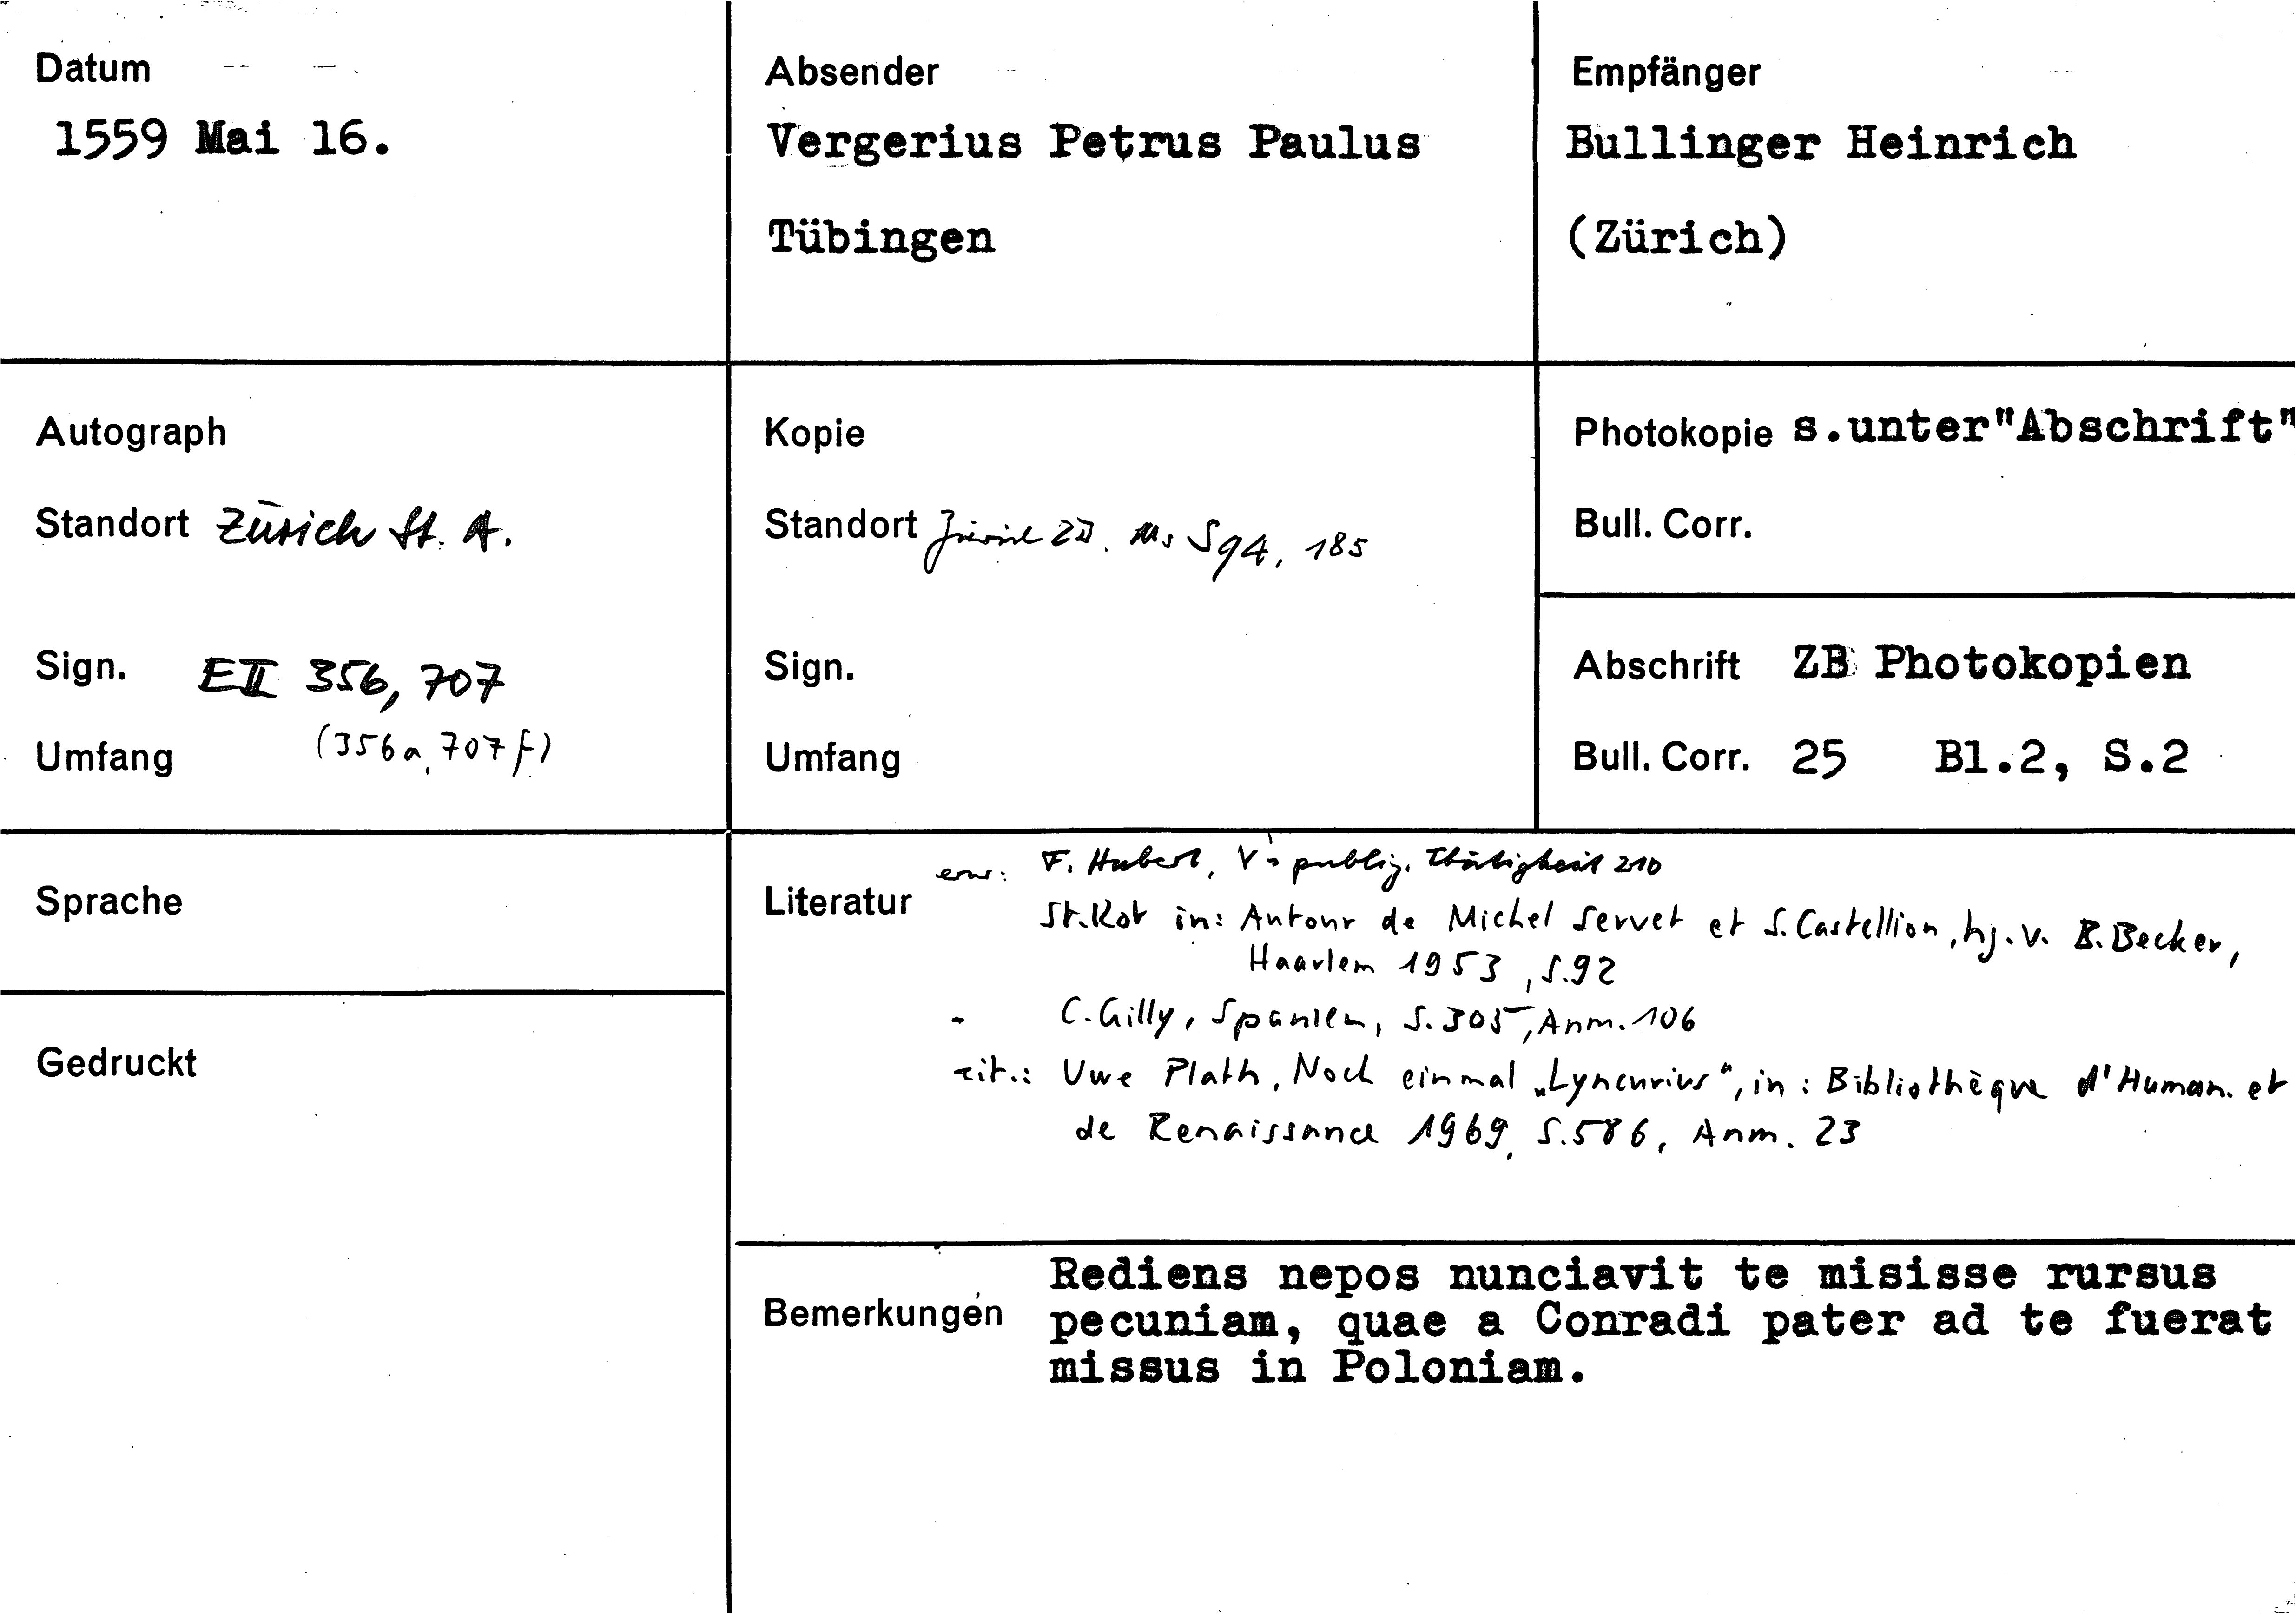 Datum
1559 Mai 16.
Absender
Vergerius Petrus Paulus
Tübingen
Empfänger
Bullinger Heinrich
(Zürich)
Autograph
Standort Zürich St. A.
Sign. EII 356, 707
Umfang (356a, 707f)
Kopie
Standort Zürich ZB. Ms S 94, 185
Sign.
Umfang
Photokopie s.unter"Abschrift"
Bull. Corr.
Abschrift ZB Photokopien
Bull. Corr. 25 Bl.2, S.2
Sprache
Gedruckt
Literatur
erw.: F. Hubert, V's publiz. Thätigkeit 210
St.Kot in: Autour de Michel Servet et S. Castellion, hg. v. B. Becker,
Haarlem 1953, S.92
- C. Gilly, Spanien, S. 305, Anm. 106
zit.: Uwe Plath, Noch einmal „Lyncurius", in: Bibliothèque d'Human. et
de Renaissance 1969, S.586, Anm. 23
Bemerkungen
Rediens nepos nunciavit te misisse rursus
pecuniam, quae a Conradi pater ad te fuerat
missus in Poloniam.